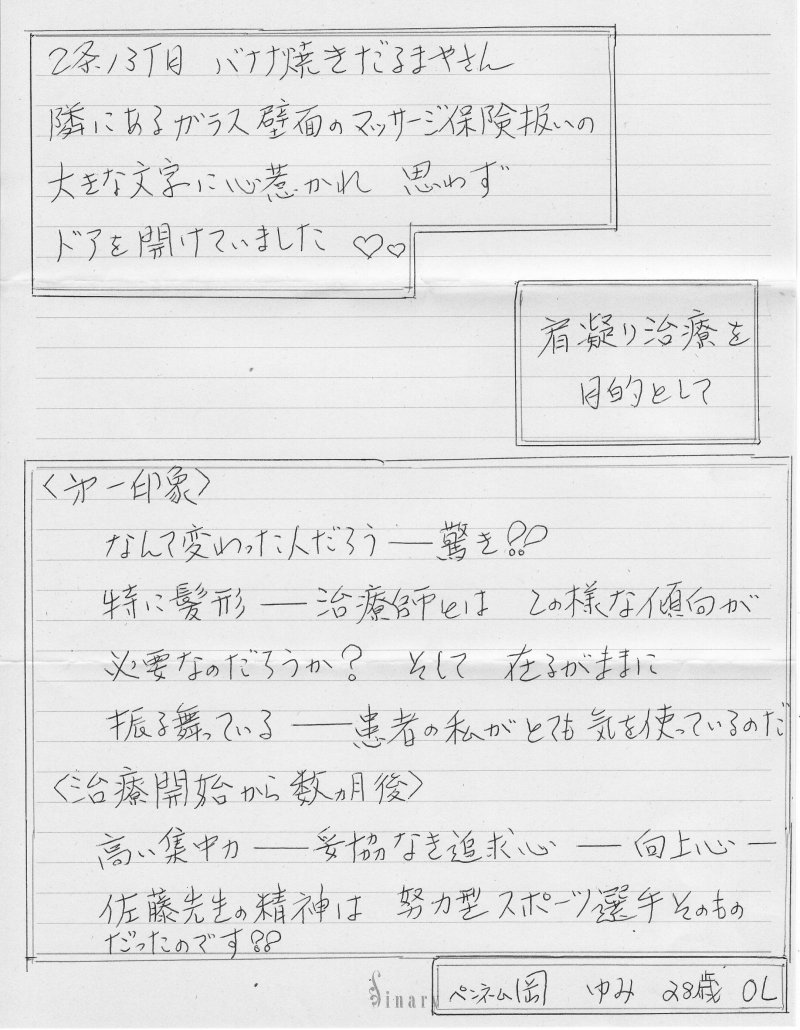 2条13丁目 バナナ焼きだるまやさん
隣にあるガラス壁面のマッサージ保険扱いの
大きな文字に心惹かれ 思わず
ドアを開けていました ♡♡
肩凝り治療を
目的として
〈第一印象〉
なんて変わった人だろう──驚き??
特に髪形──治療師とは この様な傾向が
必要なのだろうか? そして 在るがままに
振る舞っている──患者の私がとても気を使っているのだ
〈治療開始から数ヵ月後〉
高い集中力──妥協なき追求心──向上心─
佐藤先生の精神は 努力型スポーツ選手そのもの
だったのです??
inary
ペンネーム岡 ゆみ 28歳 OL